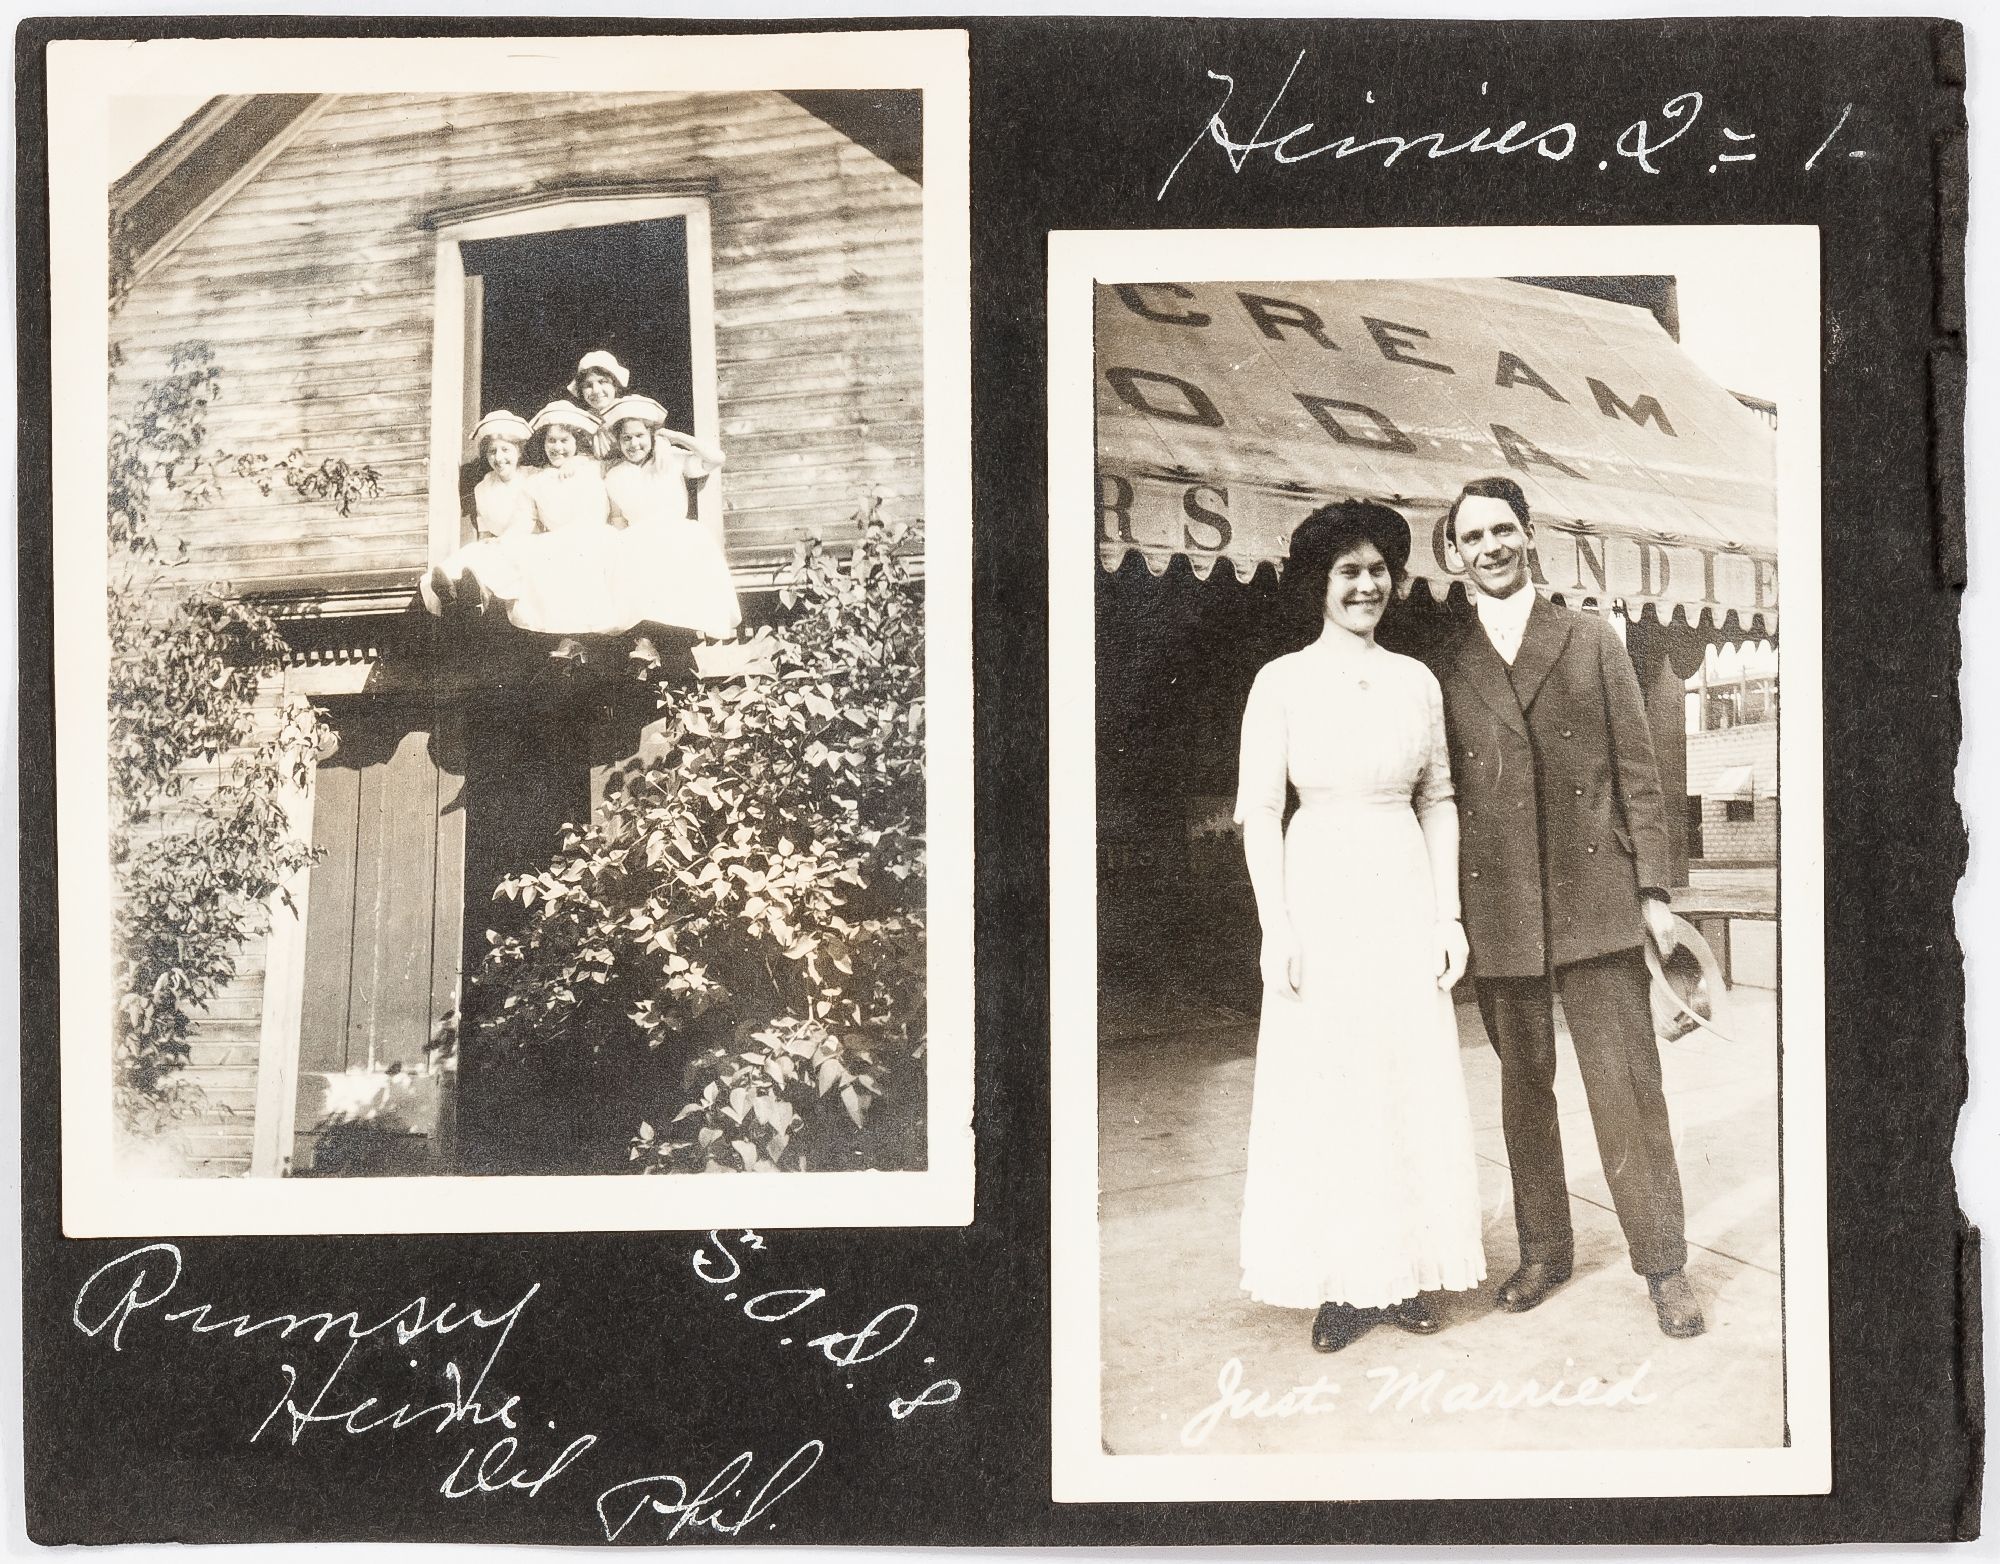 Heinies. 2 = 1-
CREAM
ODA
RS CANDIE
Just Married
Rumsey
Heinie.
Dil
Phil.